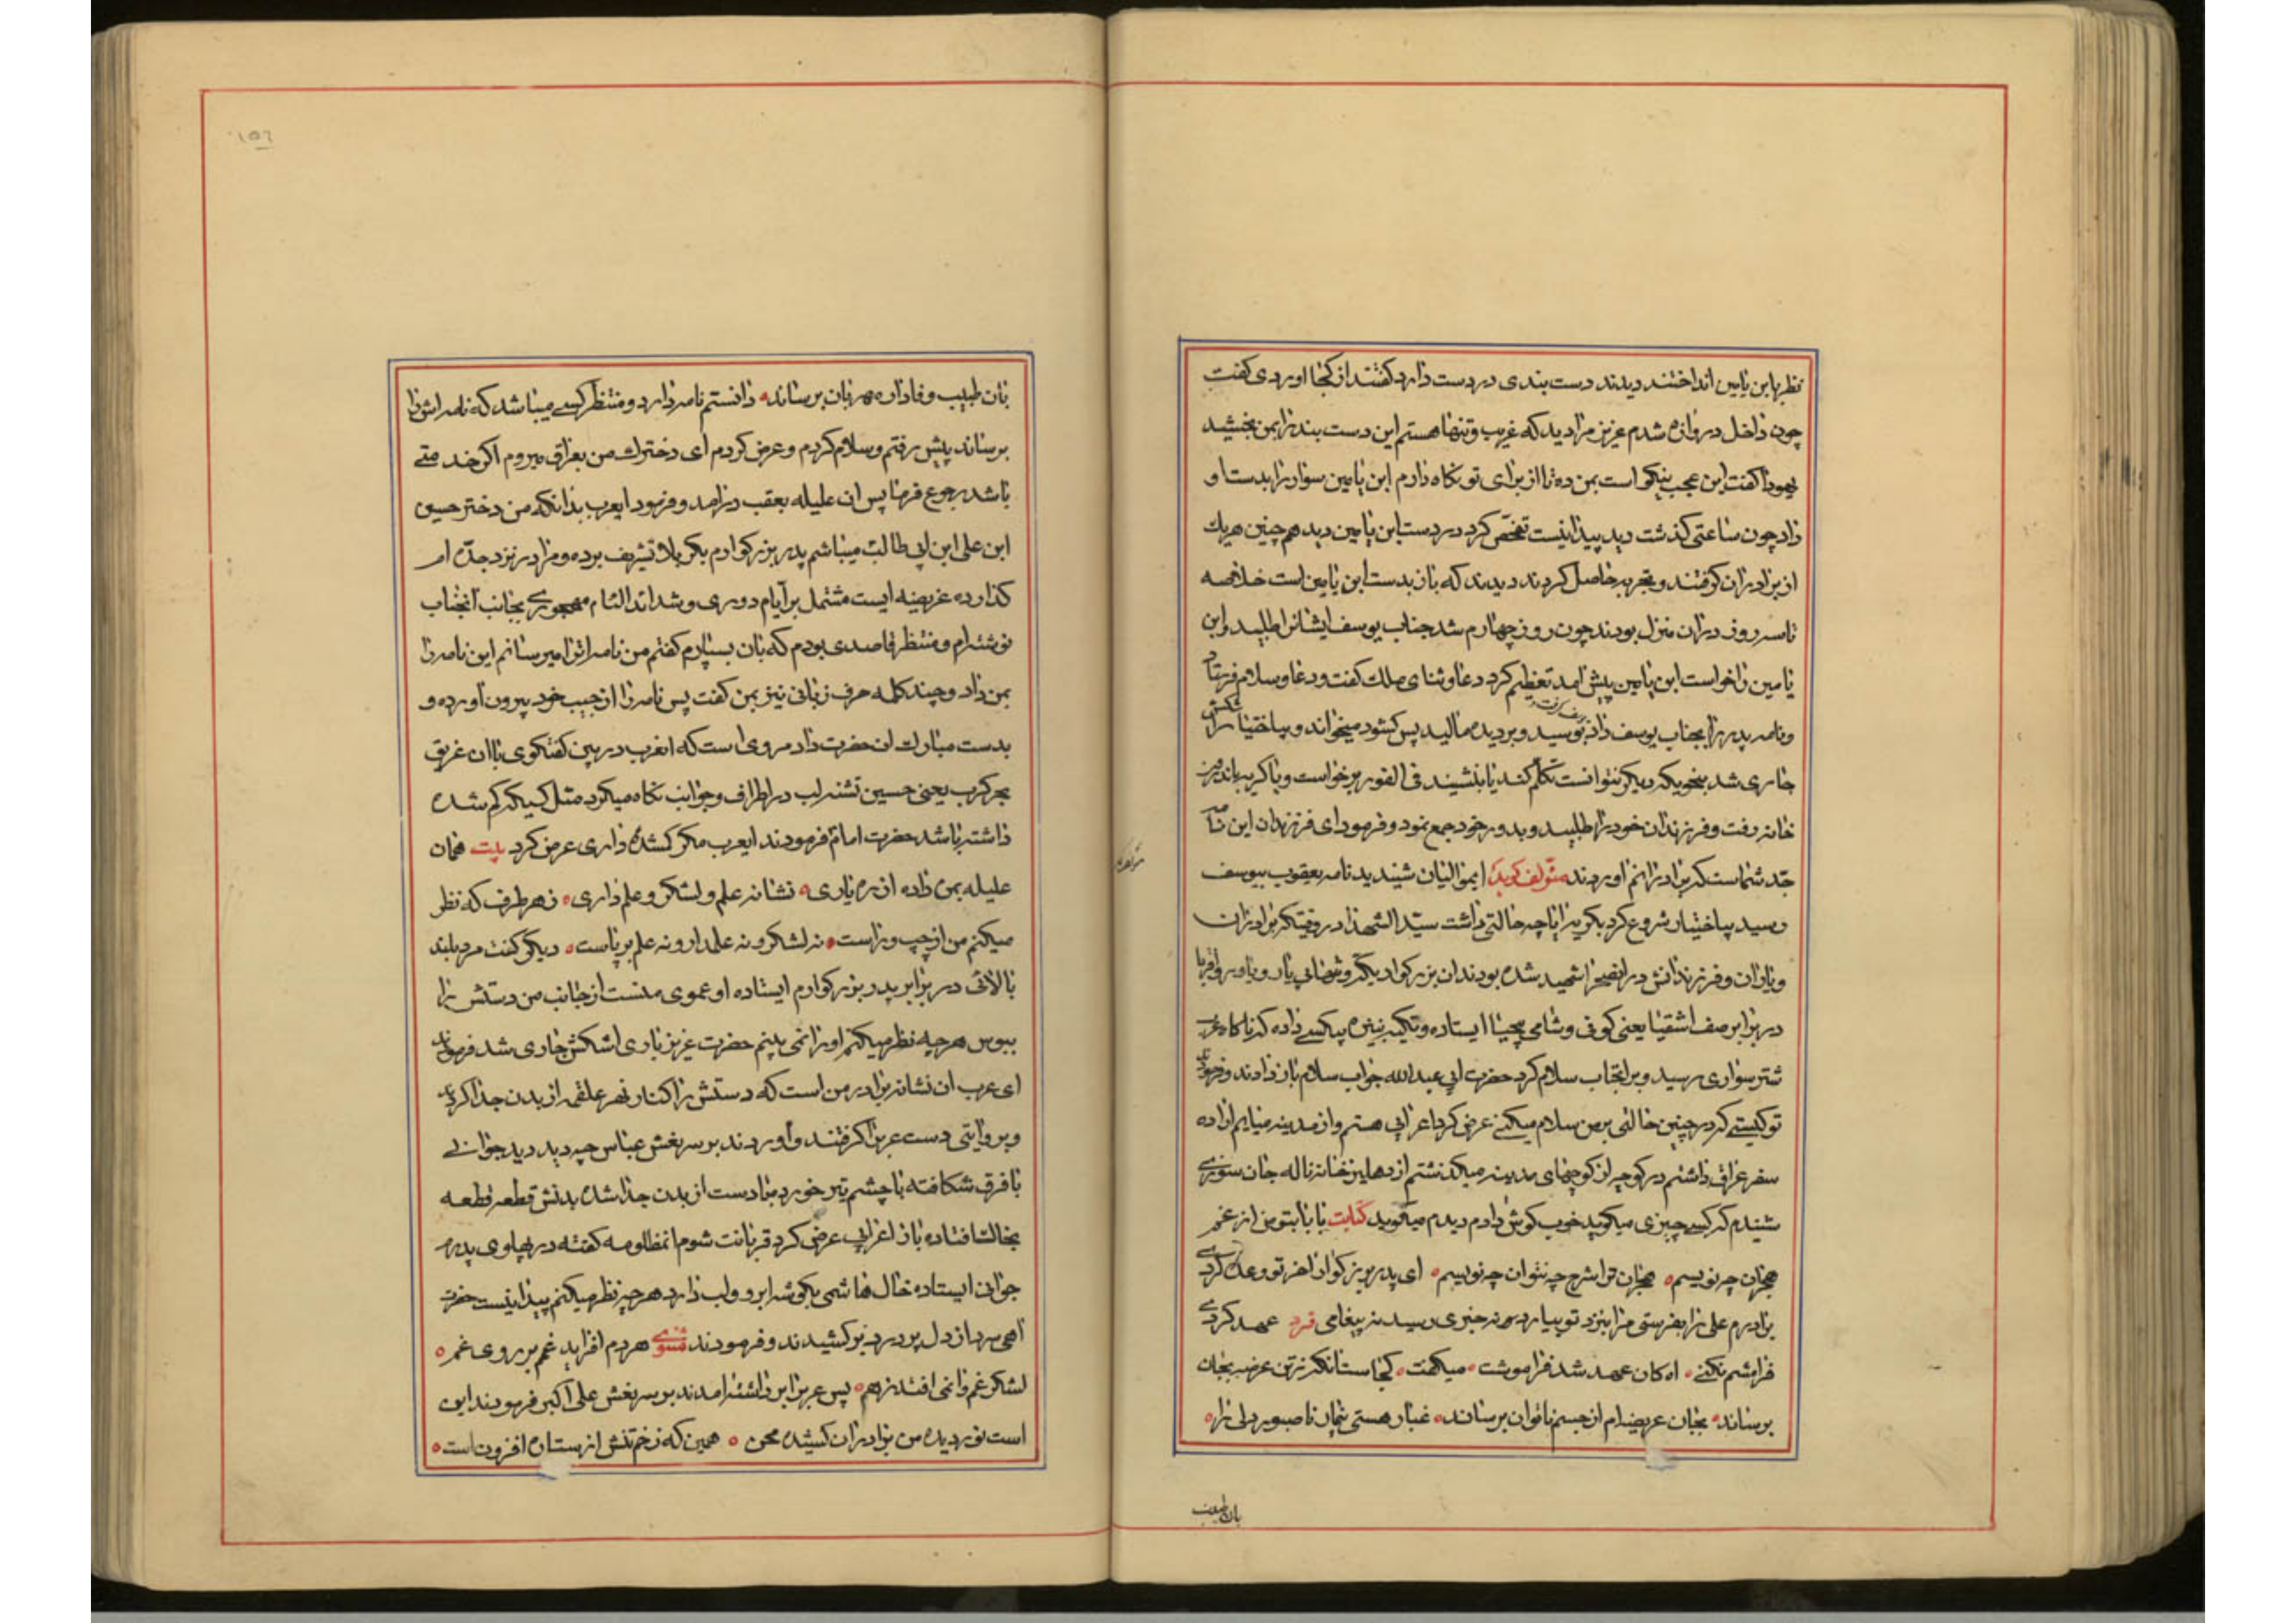 نظر بابن یامین انداختند دیدند دست بندی در دست دارد کفتند از کجا اوردی کفت
چون داخل دروازه شدم عزیز مرا دید که غریب و تنها هستم این دست بند را بمن بخشید
یهودا کفت این عجب نیکو است بمن ده تا از برای تو نکاه دارم ابن یامین سوار را بدست او
داد چون ساعتی کذشت دید پیدا نیست تفحّص کرد در دست ابن یامین دید هم چنین هریك
از برادران کرفتند و تجربه حاصل کردند دیدند که باز بدست ابن یامین است خلاصه
تا سه روز در ان منزل بودند چون روز چهارم شد جناب یوسف ایشانرا طلبید و ابن
یامین را خواست ابن یامین پیش امد تعظیم کرد دعا و ثنای ملك کفت و دعا و سلام
و نامه پدر را بجناب یوسف داد بوسید و بر دیده مالید پس کشود میخواند و بیاختیار اشکش
جاری شد بنحویکه دیکر نتوانست تکلّم کند یا بنشیند فی الفور برخواست و با کریه باندرون
خانه رفت و فرزندان خود را طلبید و بدور خود جمع نمود و فرمود ای فرزندان این نامه
جدّ شماست که برادرانم اوردند مؤلف کوید ایموالیان شنیدید نامه یعقوب بیوسف
رسید بیاختیار شروع کرد بکریه ایا چه حالتی داشت سیّد الشهدا در وقتیکه برادران
و یاران و فرزندانش در انصحرا شهید شده بودند ان بزرکوار یکّه و تنها بی یار و یاور و اقربا
در برابر صف اشقیا یعنی کوفی و شامی بیحیا ایستاده و تکیه بنیزه بیکسی داده که ناکاه عرب
شتر سواری رسید و بر انجناب سلام کرد حضرت ابی عبدالله جواب سلام باز دادند و فرمودند
تو کیستی که در چنین حالتی بر من سلام میکنی عرض کرد اعرابی هستم و از مدینه میایم اراده
سفر عراق داشتم در کوچه از کوچهای مدینه میکذشتم از دهلیز خانه ناله جان سوزی
شنیدم که کسی چیزی میکوید خوب کوش دادم دیدم میکوید بابا بتو من از غم
هجران چه نویسم هجران ترا شرح چه نتوان چه نویسم ای پدر بزرکوار اخر تو وعده کردی
برادرم علی را بفرستی مرا بنزد تو بیارد نه خبری رسید نه پیغامی فرد عهد کردی
فرامشم نکنی اه کان عهد شد فراموشت میکفت کجاست انکه ز تن عرضه بجان
برساند بجان عریضه ام از جسم ناتوان برساند غبار هستی نا صبور دلی را
بان طبیب
بان طبیب وفادار مهربان برساند دانستم نامه دارد و منتظر کسی میباشد که نامه اش را
برساند پیش رفتم و سلام کردم و عرض کردم ای دخترك من بعراق میروم اکر خدمتی
باشد رجوع فرما پس ان علیله بعقب در امد و فرمود ایعرب بدانکه من دختر حسین
ابن علی ابن ابی طالب میباشم پدر بزرکوارم بکربلا تشریف برده و مرا در نزد جدّه ام
کذارده عریضه ایست مشتمل بر آیام دوری و شداید الام مهجوری بجانب انجناب
نوشته ام و منتظر قاصدی بودم که بان بسپارم کفتم من نامه اترا میرسانم این نامه را
بمن داد و چند کلمه حرف زبانی نیز بمن کفت پس نامه را از جیب خود بیرون آورده و
بدست مبارك ان حضرت داد مروی است که انعرب در بین کفتکوی با ان غریق
بحر کرب یعنی حسین تشنه لب در اطراف و جوانب نکاه میکرد مثل کسیکه کم شده
داشته باشد حضرت امام فرمودند ایعرب مکر کمشده داری عرض کرد بیت همان
علیله بمن داده از ره یاری نشانه علم و لشکر و علمداری ز هر طرف که نظر
میکنم من از چپ و راست نه لشکر و نه علمدار و نه علم بر پاست دیکر کفت مرد بلند
بالائی در برابر پدر بزرکوارم ایستاده او عموی منست از جانب من دستش را
ببوس هر چه نظر میکنم او را نمی بینم حضرت عزیز باری اشکش جاری شد فرمودند
ای عرب ان نشانه برادر من است که دستش را کنار نهر علقمه از بدن جدا کردند
و بروایتی دست عرب را کرفتند و آوردند بر سر نعش عباس چه دید دید جوانی
با فرق شکافته با چشم تیر خورده با دست از بدن جدا شده بدنش قطعه قطعه
بخاك افتاده باز اعرابی عرض کرد قربانت شوم انمظلومه کفته در پهلوی پدرم
جوانی ایستاده خال هاشمی بکوشه ابرو و لب دارد هر چه نظر میکنم پیدا نیست حضرت
اهی سرد از دل پر درد بر کشیدند و فرمودند مثنوی هر دم افزاید غم بر روی غم
لشکر غم را نمی افتد ز هم پس عرب را برداشته امدند بر سر نعش علی اکبر فرمودند این
است نور دیده من برادران کشیده محن همین که زخم تنش از ستاره افزون است